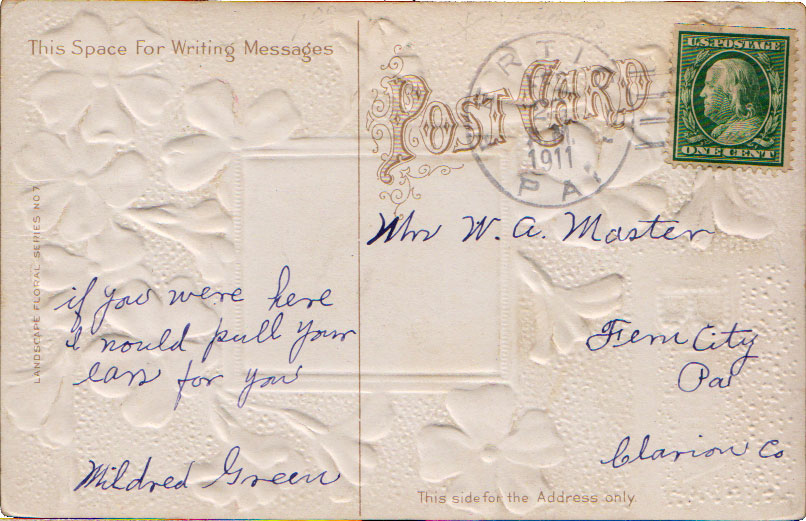 This Space For Writing Messages
POST CARD
U.S. POSTAGE
ONE CENT
1911
PA.
LANDSCAPE FLORAL SERIES NO 7
Mrs W. A. Master
if you were here
I would pull your
ears for you
Mildred Green
Fern City
Pa
Clarion Co
This side for the Address only.